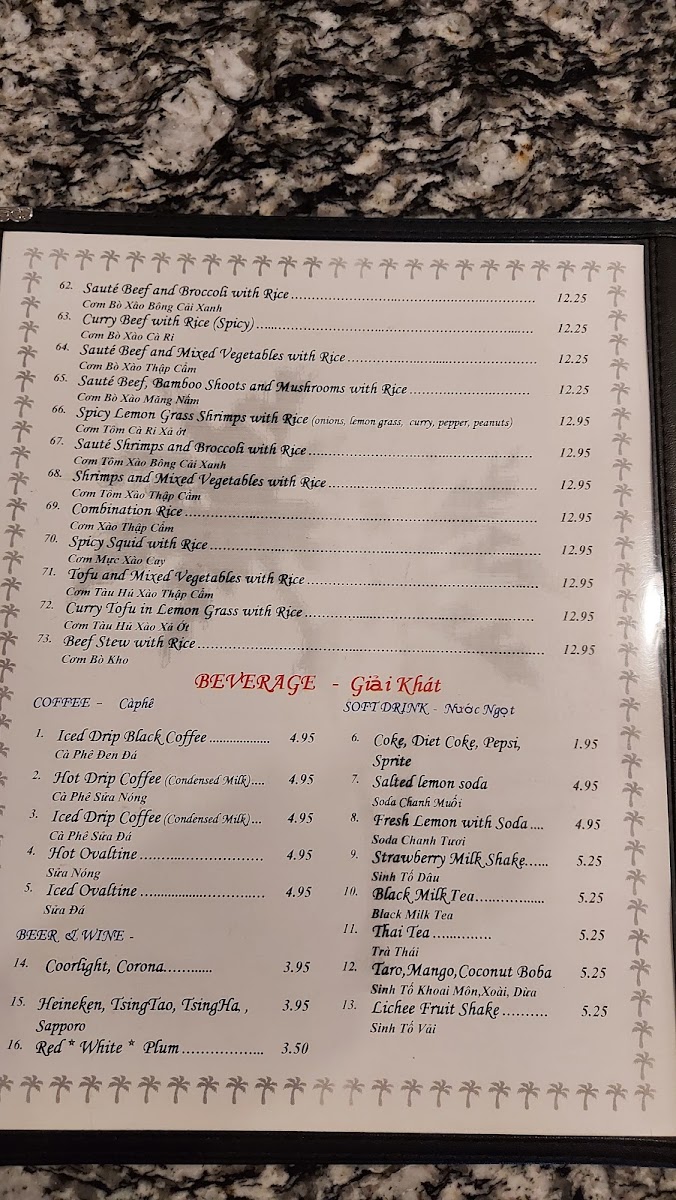 62. Sauté Beef and Broccoli with Rice 12.25
Cơm Bò Xào Bông Cải Xanh
63. Curry Beef with Rice (Spicy) 12.25
Cơm Bò Xào Cà Ri
64. Sauté Beef and Mixed Vegetables with Rice 12.25
Cơm Bò Xào Thập Cẩm
65. Sauté Beef, Bamboo Shoots and Mushrooms with Rice 12.25
Cơm Bò Xào Măng Nấm
66. Spicy Lemon Grass Shrimps with Rice (onions, lemon grass, curry, pepper, peanuts) 12.95
Cơm Tôm Cà Ri Xả ớt
67. Sauté Shrimps and Broccoli with Rice 12.95
Cơm Tôm Xào Bông Cải Xanh
68. Shrimps and Mixed Vegetables with Rice 12.95
Cơm Tôm Xào Thập Cẩm
69. Combination Rice 12.95
Cơm Xào Thập Cẩm
70. Spicy Squid with Rice 12.95
Cơm Mực Xào Cay
71. Tofu and Mixed Vegetables with Rice 12.95
Cơm Tàu Hủ Xào Thập Cẩm
72. Curry Tofu in Lemon Grass with Rice 12.95
Cơm Tàu Hủ Xào Xả Ớt
73. Beef Stew with Rice 12.95
Cơm Bò Kho
BEVERAGE - Giải Khát
COFFEE - Càphê
1. Iced Drip Black Coffee 4.95
Cà Phê Đen Đá
2. Hot Drip Coffee (Condensed Milk) 4.95
Cà Phê Sữa Nóng
3. Iced Drip Coffee (Condensed Milk) 4.95
Cà Phê Sữa Đá
4. Hot Ovaltine 4.95
Sữa Nóng
5. Iced Ovaltine 4.95
Sữa Đá
BEER & WINE -
14. Coorlight, Corona 3.95
15. Heineken, TsingTao, TsingHa , 3.95
Sapporo
16. Red * White * Plum 3.50
SOFT DRINK - Nước Ngọt
6. Coke, Diet Coke, Pepsi, 1.95
Sprite
7. Salted lemon soda 4.95
Soda Chanh Muối
8. Fresh Lemon with Soda 4.95
Soda Chanh Tươi
9. Strawberry Milk Shake 5.25
Sinh Tố Dâu
10. Black Milk Tea 5.25
Black Milk Tea
11. Thai Tea 5.25
Trà Thái
12. Taro,Mango,Coconut Boba 5.25
Sinh Tố Khoai Môn,Xoài, Dừa
13. Lichee Fruit Shake 5.25
Sinh Tố Vải